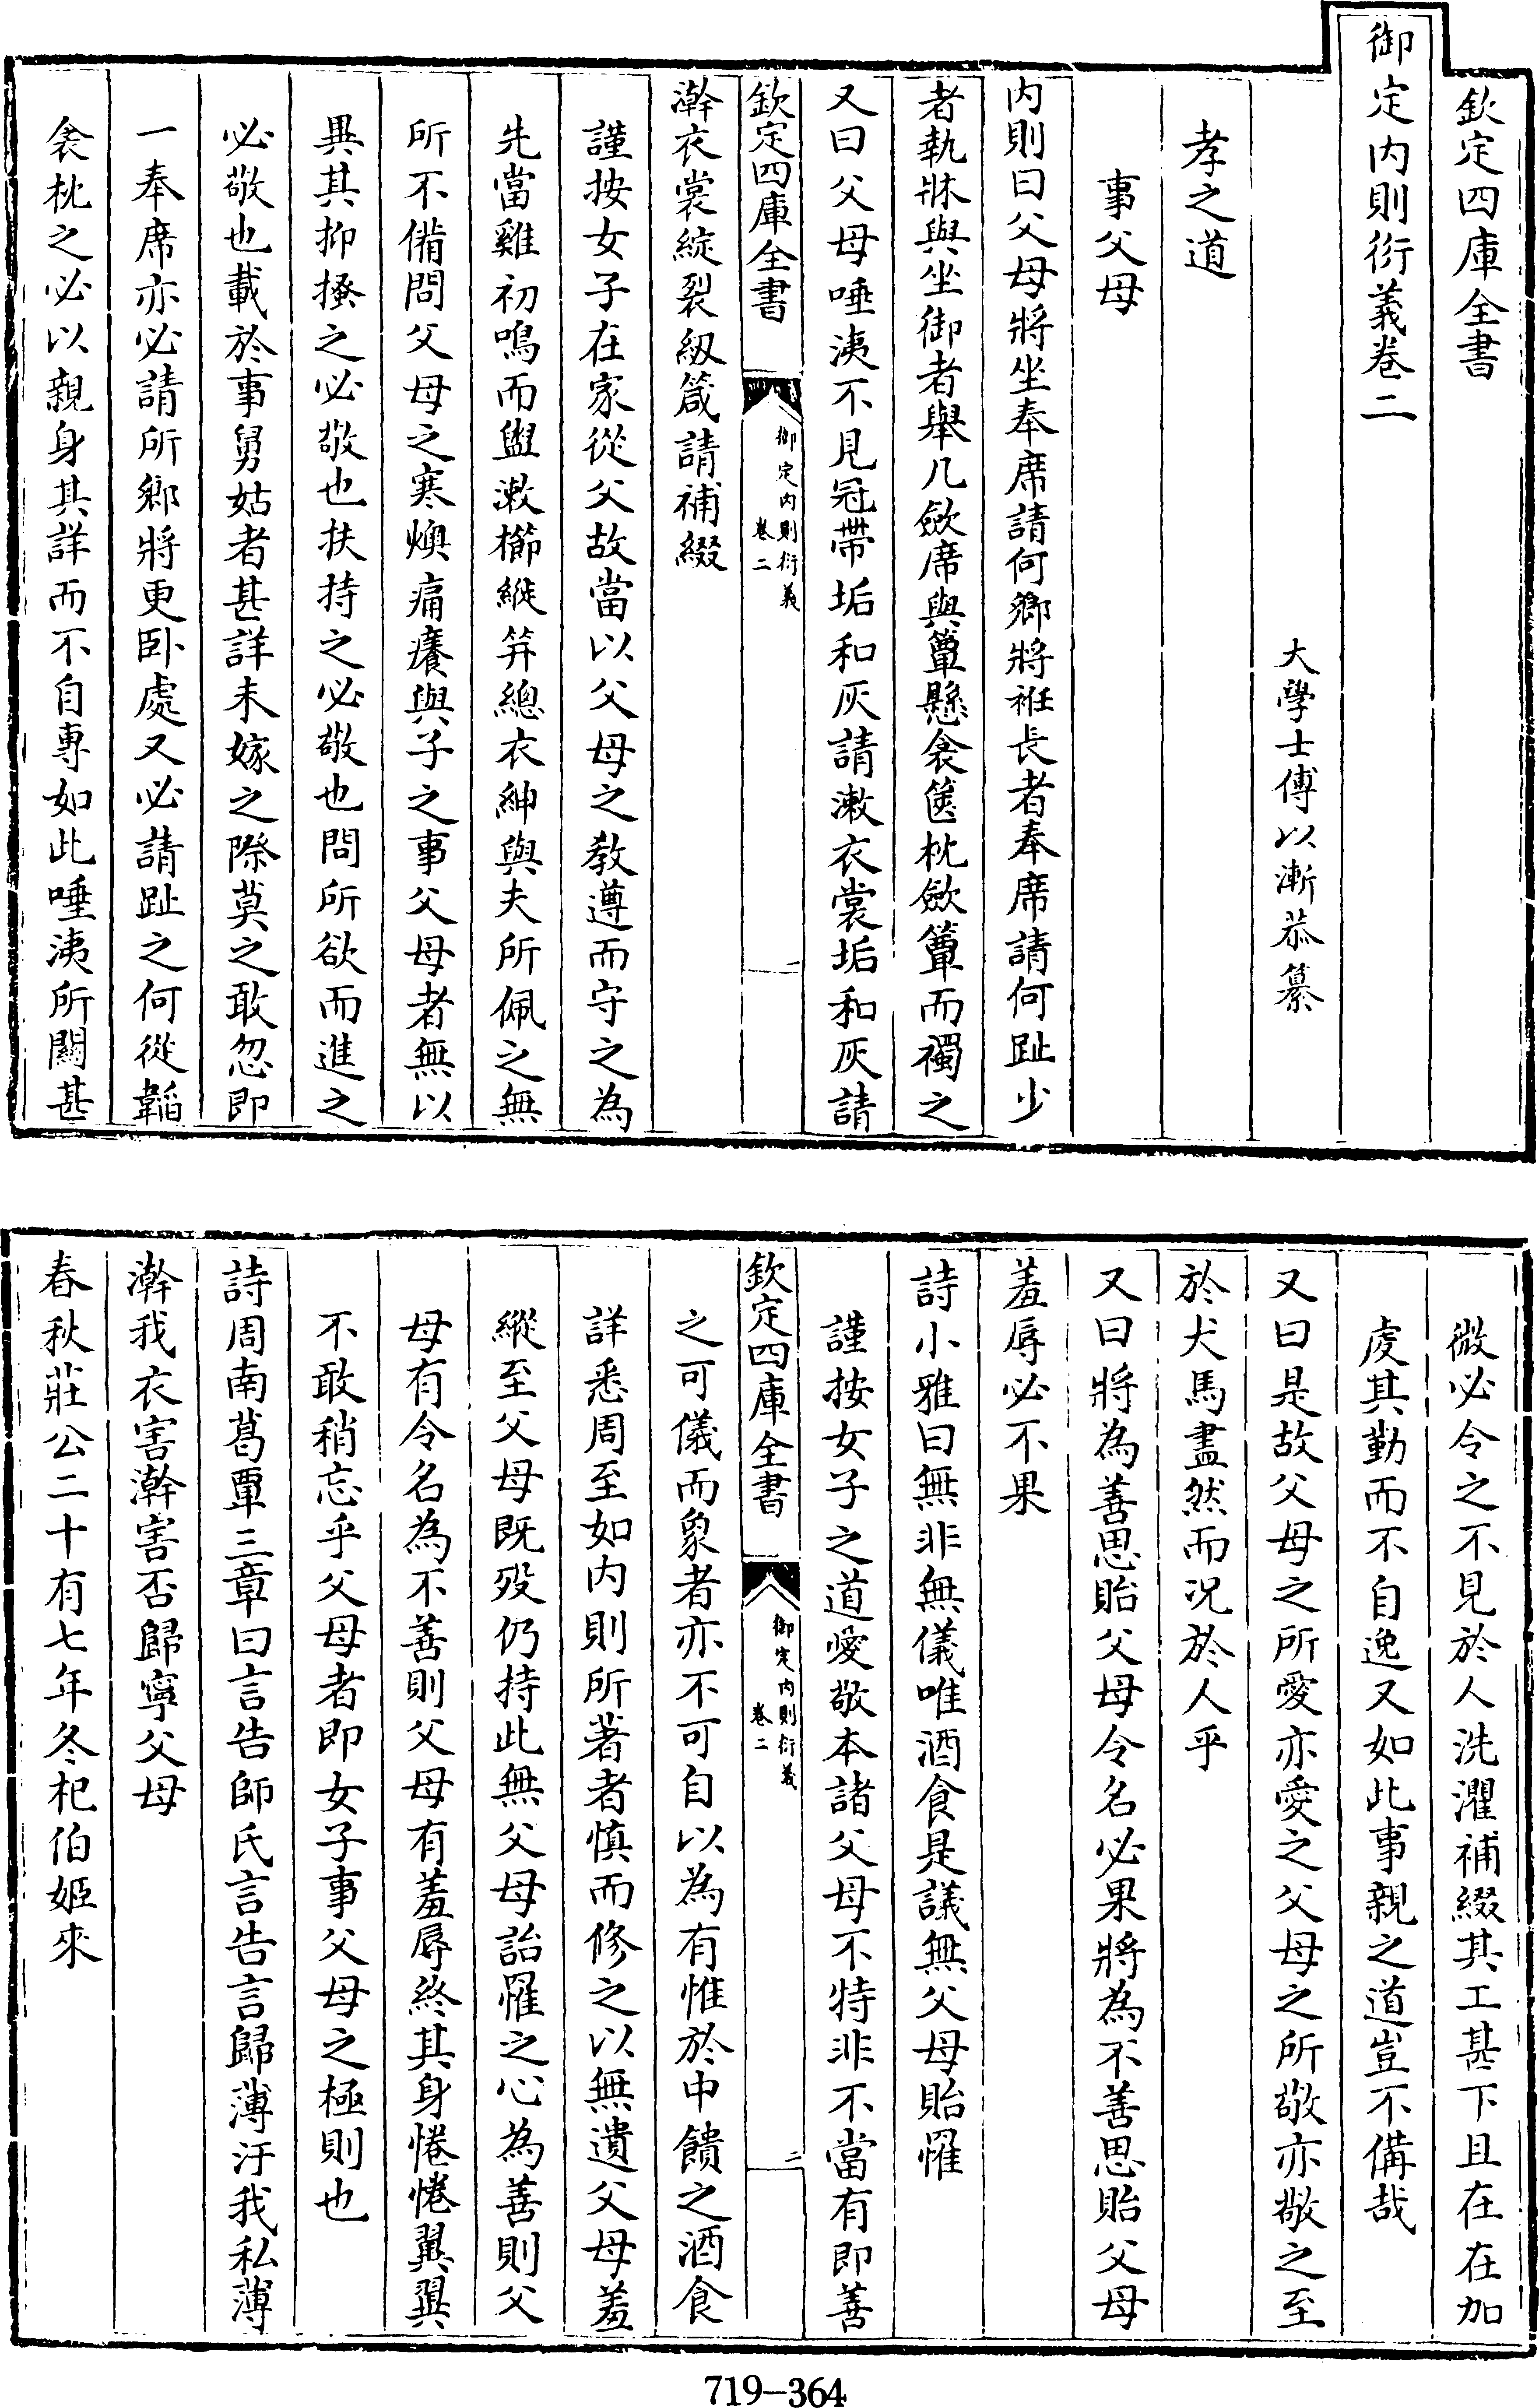 欽定四庫全書
御定内則衍義卷二
大學士傅以漸恭纂
孝之道
事父母
内則曰父母將坐奉席請何鄉將衽長者奉席請何趾少
者執牀與坐御者舉几斂席與簟懸衾篋枕斂簟而襡之
又曰父母唾洟不見冠帶垢和灰請漱衣裳垢和灰請
欽定四庫全書
御定内則衍義
卷二
一
澣衣裳綻裂紉箴請補綴
謹按女子在家從父故當以父母之教遵而守之為
先當雞初鳴而盥漱櫛縰笄總衣紳與夫所佩之無
所不備問父母之寒燠痛癢與子之事父母者無以
異其抑搔之必敬也扶持之必敬也問所欲而進之
必敬也載於事舅姑者甚詳未嫁之際莫之敢忽即
一奉席亦必請所鄉將更卧處又必請趾之何從韜
衾枕之必以親身其詳而不自專如此唾洟所關甚
微必令之不見於人洗濯補綴其工甚下且在在加
虔其勤而不自逸又如此事親之道豈不備哉
又曰是故父母之所愛亦愛之父母之所敬亦敬之至
於犬馬盡然而况於人乎
又曰將為善思貽父母令名必果將為不善思貽父母
羞辱必不果
詩小雅曰無非無儀唯酒食是議無父母貽罹
謹按女子之道愛敬本諸父母不特非不當有即善
欽定四庫全書
御定内則衍義
卷二
二
之可儀而象者亦不可自以為有惟於中饋之酒食
詳悉周至如内則所著者慎而修之以無遺父母羞
縱至父母既殁仍持此無父母詒罹之心為善則父
母有令名為不善則父母有羞辱終其身惓惓翼翼
不敢稍忘乎父母者即女子事父母之極則也
詩周南葛覃三章曰言告師氏言告言歸薄汙我私薄
澣我衣害澣害否歸寧父母
春秋莊公二十有七年冬杞伯姬來
719-364